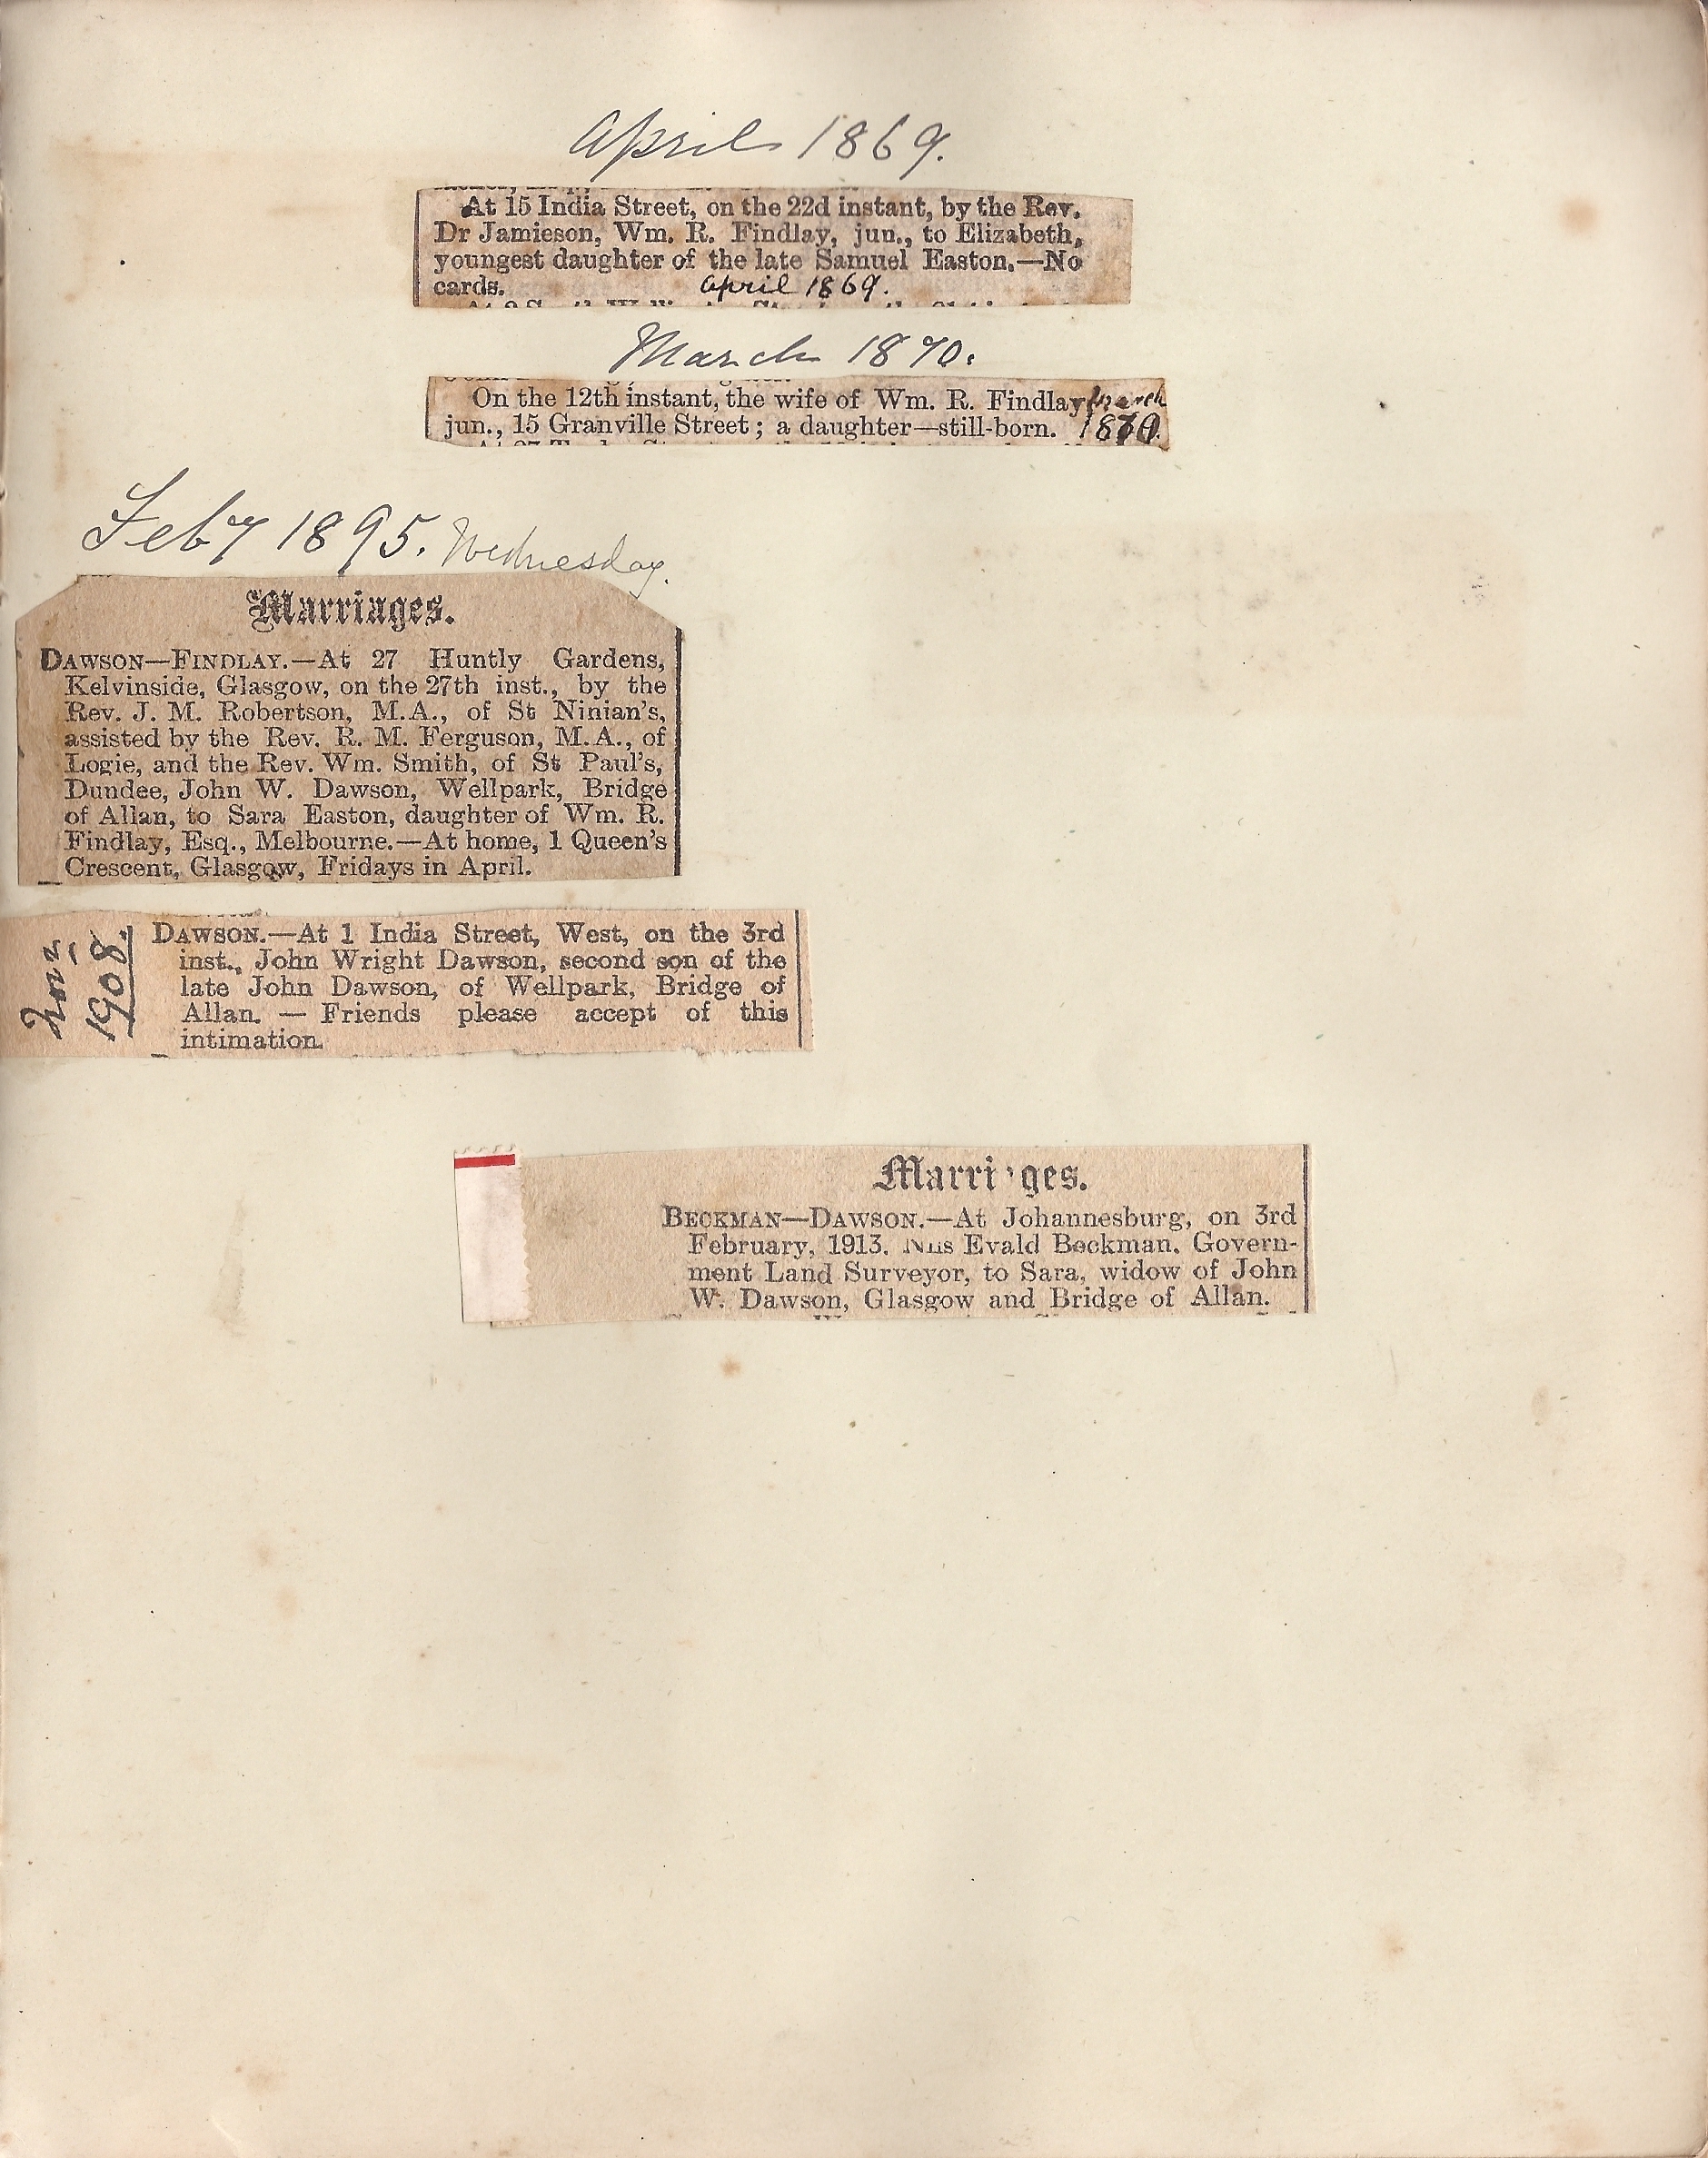 April 1869.
At 15 India Street, on the 22d instant, by the Rev.
Dr Jamieson, Wm. R. Findlay, jun., to Elizabeth,
youngest daughter of the late Samuel Easton.—No
cards. April 1869.
March 1870.
On the 12th instant, the wife of Wm. R. Findlay March
jun., 15 Granville Street; a daughter—still-born. 1870.
Feby 1895. Wednesday.
Marriages.
DAWSON—FINDLAY.—At 27 Huntly Gardens,
Kelvinside, Glasgow, on the 27th inst., by the
Rev. J. M. Robertson, M.A., of St Ninian's,
assisted by the Rev. R. M. Ferguson, M.A., of
Logie, and the Rev. Wm. Smith, of St Paul's,
Dundee, John W. Dawson, Wellpark, Bridge
of Allan, to Sara Easton, daughter of Wm. R.
Findlay, Esq., Melbourne.—At home, 1 Queen's
Crescent, Glasgow, Fridays in April.
1908.
DAWSON.—At 1 India Street, West, on the 3rd
inst., John Wright Dawson, second son of the
late John Dawson, of Wellpark, Bridge of
Allan. — Friends please accept of this
intimation.
Marri ges.
BECKMAN—DAWSON.—At Johannesburg, on 3rd
February, 1913. Nils Evald Beckman, Govern-
ment Land Surveyor, to Sara, widow of John
W. Dawson, Glasgow and Bridge of Allan.